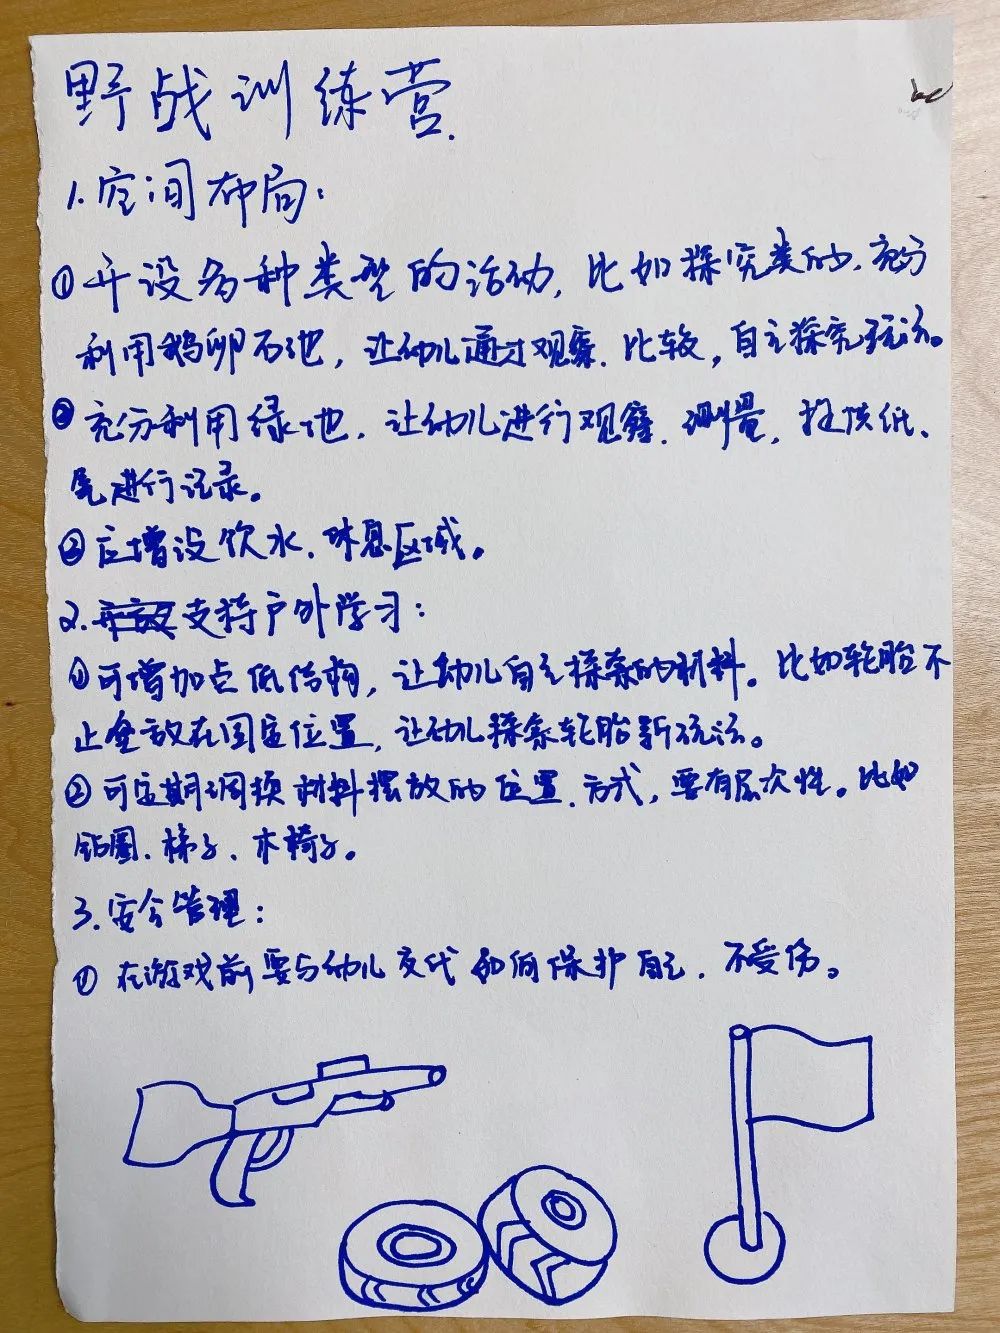 野战训练营.
1.空间布局:
①开设各种类型的活动,比如探究类的、充分
利用鹅卵石池,让幼儿通过观察、比较,自主探究玩法。
②充分利用绿地,让幼儿进行观察、测量,提供纸、
笔进行记录。
③应增设饮水、休息区域。
2.支持户外学习:
①可增加点低结构,让幼儿自主探索的材料。比如轮胎不
止叠放在固定位置,让幼儿探索轮胎新玩法。
②可定期调换材料摆放的位置、方式,要有层次性。比如
钻圈、梯子、木椅子。
3.安全管理:
①在游戏前要与幼儿交代如何保护自己、不受伤。